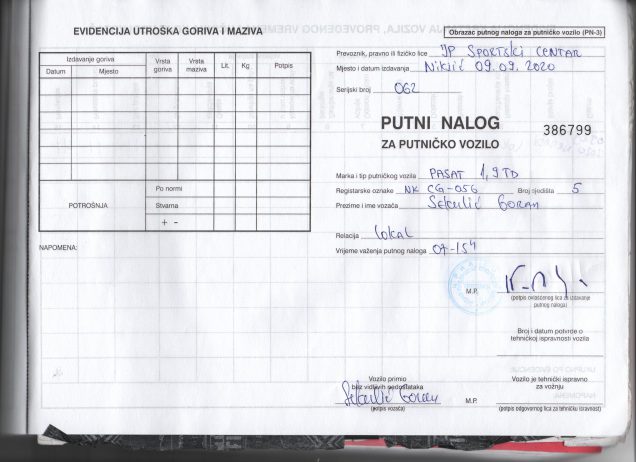 EVIDENCIJA UTROŠKA GORIVA I MAZIVA
Izdavanje goriva
Datum Mjesto Vrsta goriva Vrsta maziva Lit. Kg Potpis
POTROŠNJA
Po normi
Stvarna
+ -
NAPOMENA:
Obrazac putnog naloga za putničko vozilo (PN-3)
Prevoznik, pravno ili fizičko lice JP SPORTSKI CENTAR
Mjesto i datum izdavanja Nikšić 09.09.2020
Serijski broj 062
PUTNI NALOG
386799
ZA PUTNIČKO VOZILO
Marka i tip putničkog vozila PASAT 1,9 TD
Registarske oznake NK CG-056 Broj sjedišta 5
Prezime i ime vozača Sekulić Goran
Relacija Lokal
Vrijeme važenja putnog naloga 07-15h
M.P.
(potpis ovlašćenog lica za izdavanje
putnog naloga)
Broj i datum potvrde o
tehničkoj ispravnosti vozila
Vozilo primio
bez vidljivih nedostataka
Sekulić Goran
(potpis vozača)
M.P.
Vozilo je tehnički ispravno
za vožnju
(potpis odgovornog lica za tehničku ispravnost)